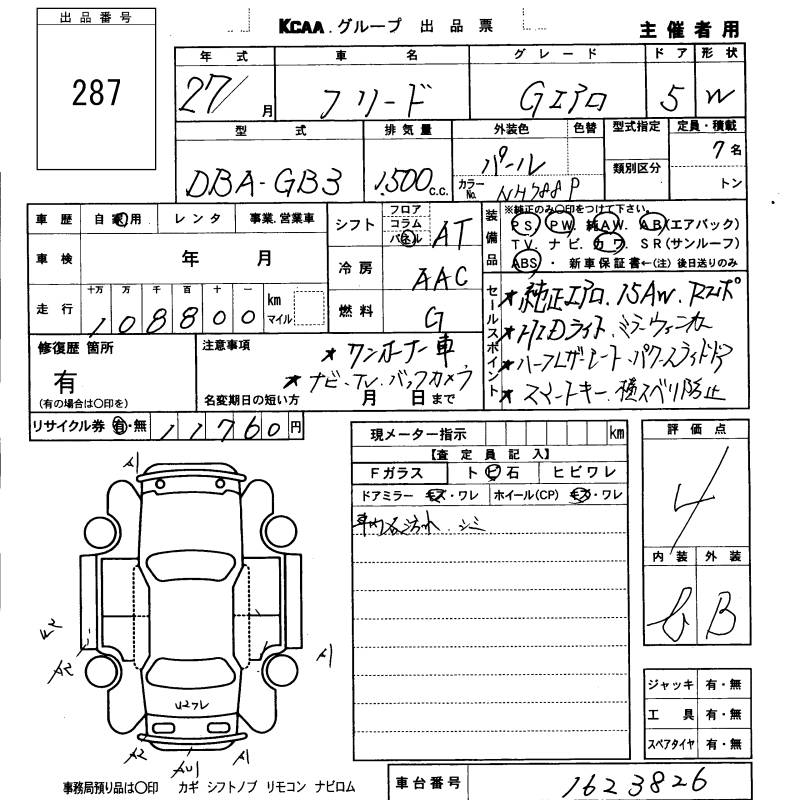 出品番号
287
KCAA.グループ 出品票
主催者用
年式 車名 グレード ドア 形状
27/ 月 フリード Gエアロ 5 W
型式 排気量 外装色 色替 型式指定 定員・積載
類別区分
DBA-GB3 1,500 c.c. パール 7名
カラーNo. NH788P トン
車歴 自家用 レンタ 事業.営業車
車検 年 月
走行 十万 万 千 百 十 一
108800 km マイル
シフト フロア コラム パネル AT
冷房 AAC
燃料 G
装備品
※純正のみ〇印をつけて下さい。
PS PW 純AW. AB(エアバック)
TV. ナビ. カワ. SR(サンルーフ)
ABS ・ 新車保証書←(注)後日送りのみ
セールスポイント
★純正エアロ.15AW.Rスポ
★HIDライト.ミラーウィンカー
★ハーフレザーシート.パワースライドドア
★スマートキー.横スベリ防止
修復歴 箇所
有
(有の場合は〇印を)
注意事項
★ワンオーナー車
★ナビ.TV.バックカメラ
名変期日の短い方 月 日まで
リサイクル券 有・無 11760円
現メーター指示 km
【査定員記入】
Fガラス トビ石 ヒビワレ
ドアミラー キズ・ワレ ホイール(CP) キズ・ワレ
シミ
評価点
4
内装 外装
B
ジャッキ 有・無
工具 有・無
スペアタイヤ 有・無
A1
A2
A1
U2フレ
A2
A1
事務局預り品は〇印 カギ シフトノブ リモコン ナビロム
車台番号 1623826